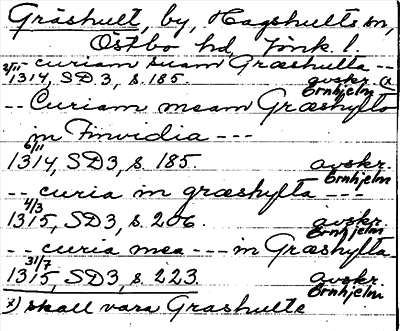 Gräshult, by, Hagshults sn,
Östbo hd, Jönk. l.
-- curiam suam Græshulta --
2/11 1314, SD 3, s. 185. avskr. x) Örnhjelm
-- Curiam meam Græshylto
in Finvidia ---
6/11 1314, SD 3, s. 185. avskr. Örnhjelm
-- curia in græshylta ---
4/3 1315, SD 3, s. 206. avskr. Örnhjelm
-- curia mea --- in Græshylta
31/7 1315, SD 3, s. 223. avskr. Örnhjelm
x) skall vara Grashulte